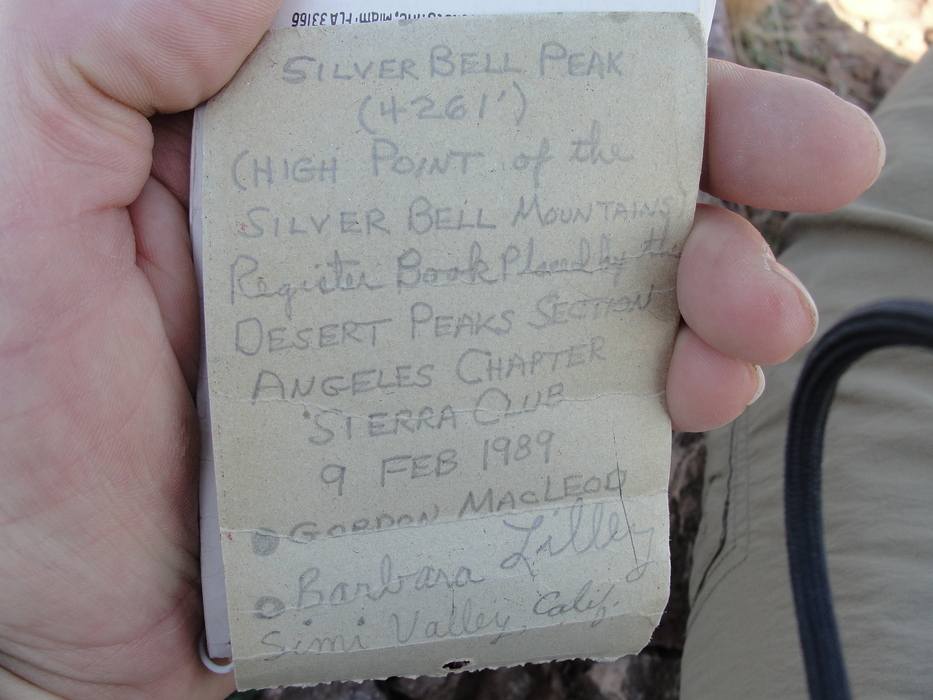 Miami FLA 33166
SILVER BELL PEAK
(4261')
(HIGH POINT of the
SILVER BELL MOUNTAINS)
Register Book Placed by the
DESERT PEAKS SECTION
ANGELES CHAPTER
SIERRA CLUB
9 FEB 1989
GORDON MACLEOD
Barbara Lilley
Simi Valley, Calif.